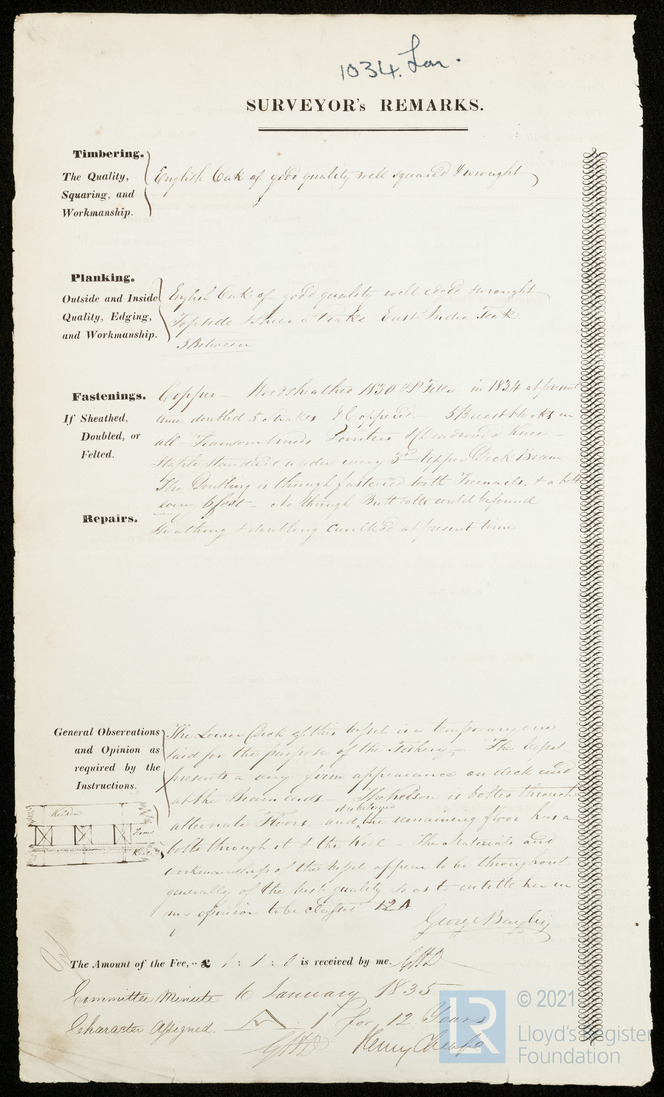 1034. Lon.
SURVEYOR's REMARKS.
Timbering.
The Quality,
Squaring, and
Workmanship.
English Oak of good quality well squared & wrought
Planking.
Outside and Inside
Quality, Edging,
and Workmanship.
English Oak of good quality well
Topside East India Teak
Between
Fastenings.
If Sheathed,
Doubled, or
Felted.
Copper - Woodsheathed 1830 in 1834 at present
time doubled 5 strakes & Coppered - 5 Breasthooks in
all - Transom Pointers & Knees -
Staple Standard under every 3rd Upper Deck Beam
The Doubling is through fastened with Treenails & a bolt
every 6 feet - No through Butt bolts could be found
Repairs.
Sheathing & doubling caulked at present time
General Observations
and Opinion as
required by the
Instructions.
The Lower Deck of this Vessel is a temporary one
laid for the purpose of the Fishery - The Vessel
presents a very firm appearance on deck and
at the Beam ends - The Kelson is bolted through
alternate Floors and the remaining floor has a
bolt through it & the keel - The Materials and
workmanship of the Vessel appear to be throughout
generally of the best quality so as to entitle her in
my opinion to be classed 12 A
George Bayley
Kelson
Keel
The Amount of the Fee, £ 1 : 1 : 0 is received by me.
Committee Minute 6 January 1835
Character Assigned A 1 for 12 Years
Henry
© 2021
Lloyd's Register
Foundation
LR